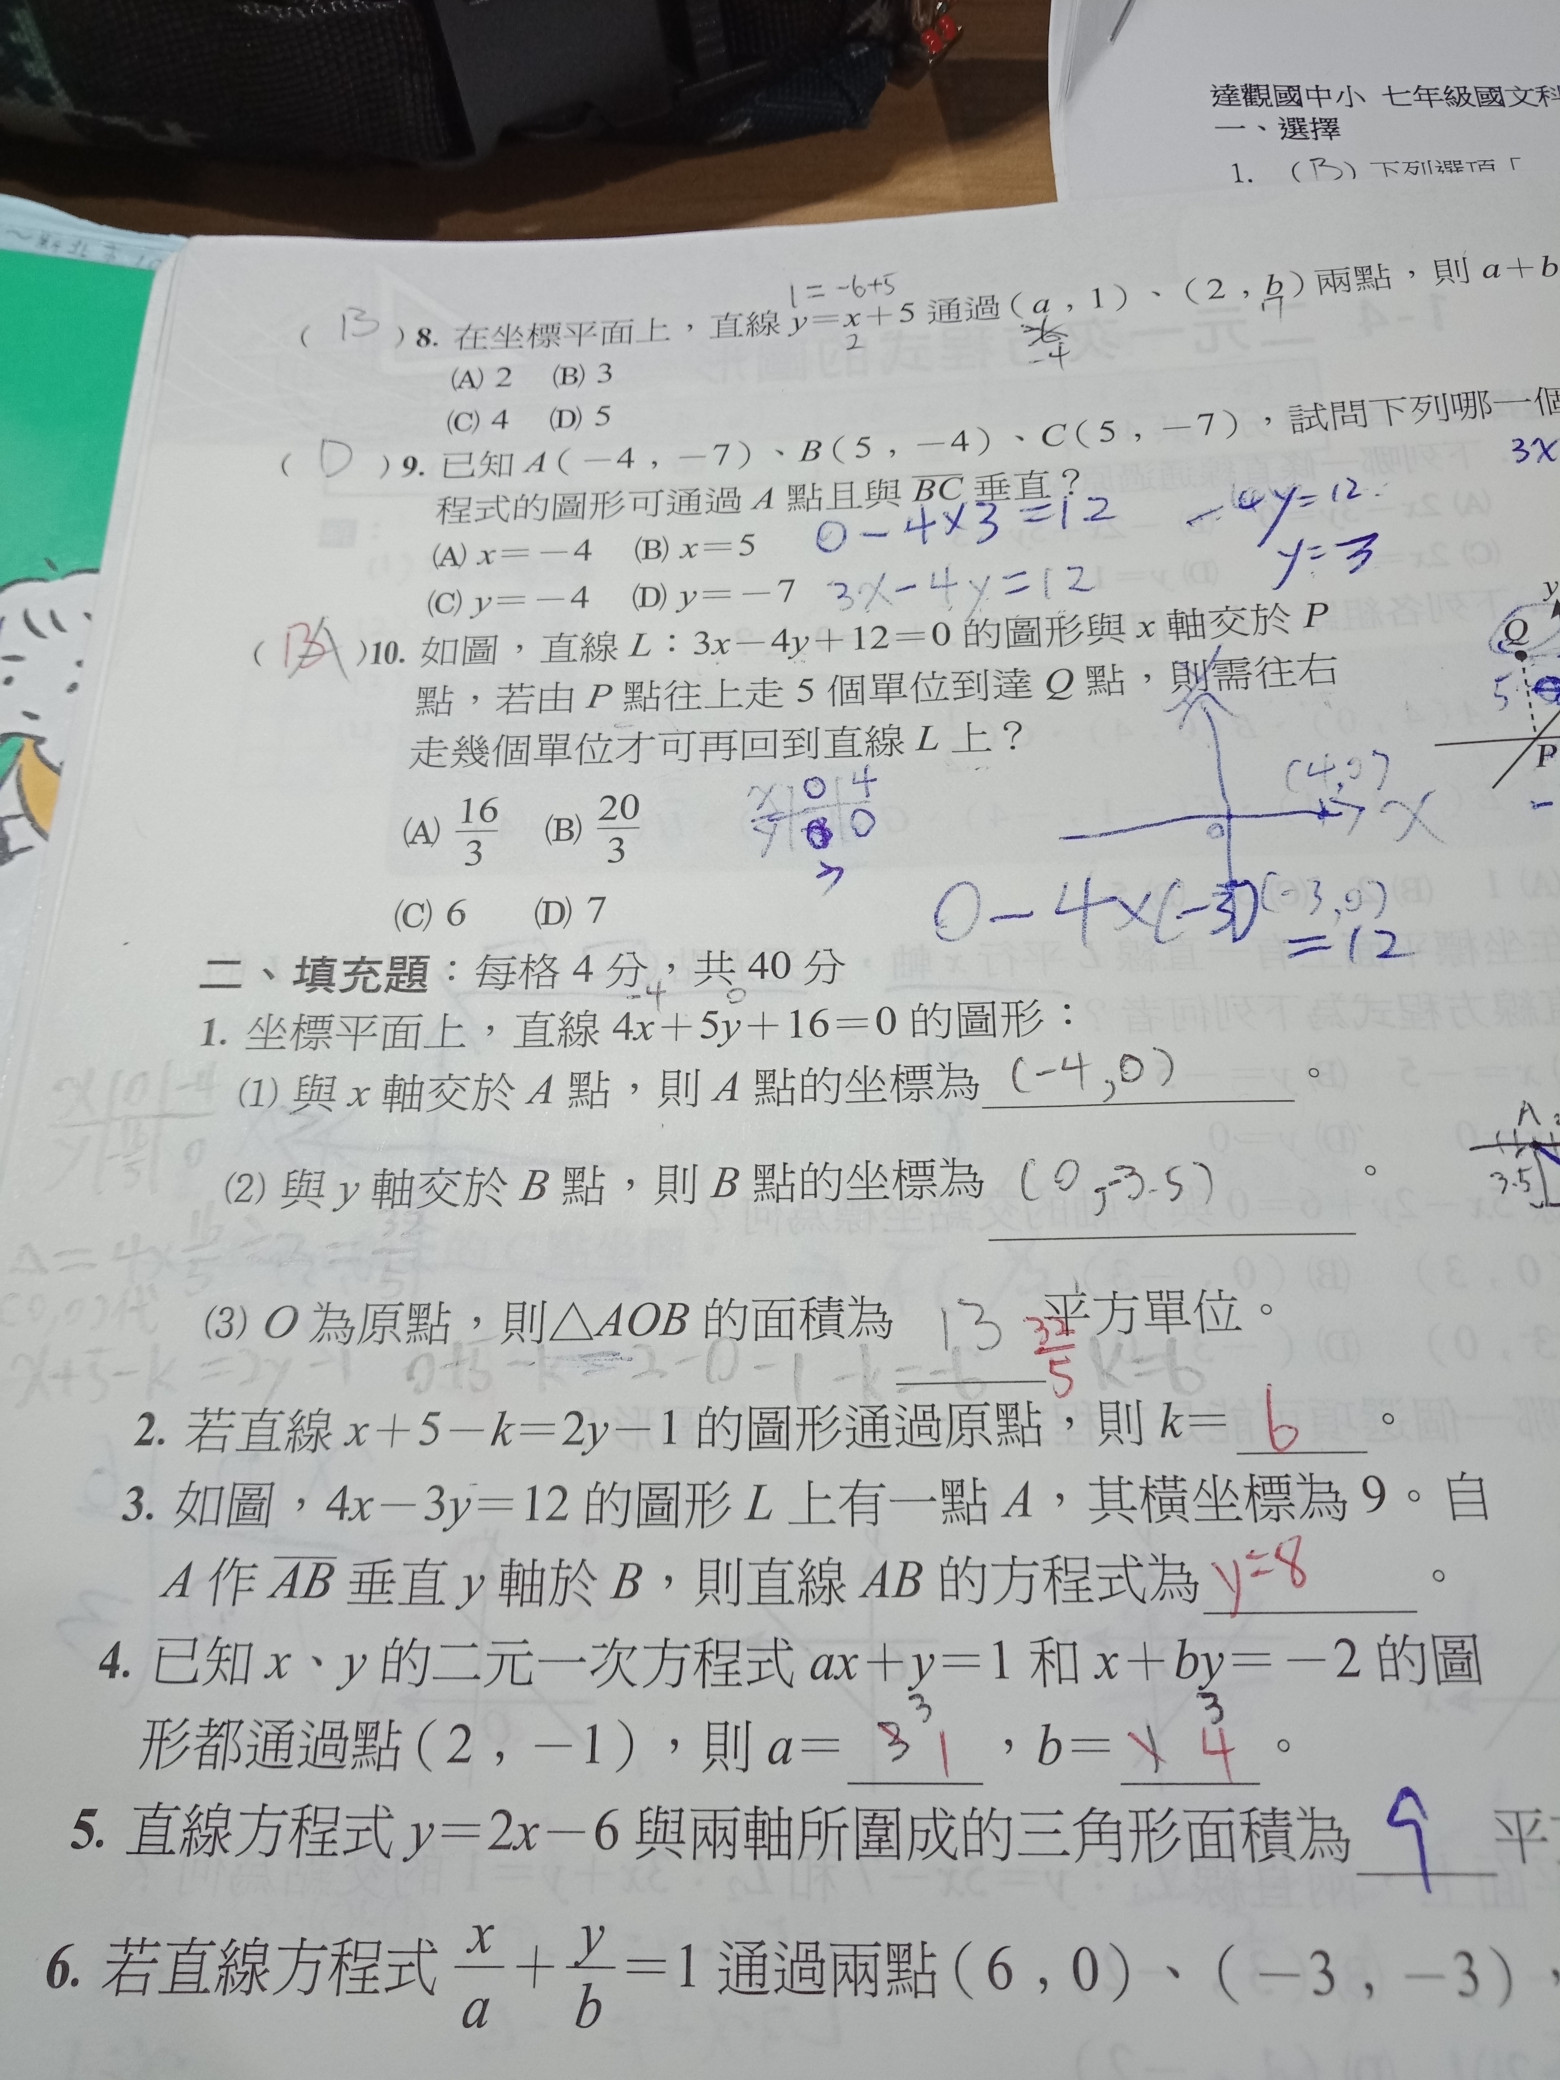 達觀國中小 七年級國文科
一、選擇
1. (B) 下列選項「
1=-6+5
( B ) 8. 在坐標平面上，直線 y=x+5 通過 ( a , 1 )、( 2 , b ) 兩點，則 a+b
2 -4 7
(A) 2 (B) 3
(C) 4 (D) 5
( D ) 9. 已知 A( -4 , -7 )、B( 5 , -4 )、C( 5 , -7 )，試問下列哪一個
3x
程式的圖形可通過 A 點且與 BC 垂直？
0-4×3=12 -4y=12
(A) x=-4 (B) x=5
y=3
(C) y=-4 (D) y=-7 3x-4y=12
( BA )10. 如圖，直線 L：3x-4y+12=0 的圖形與 x 軸交於 P
點，若由 P 點往上走 5 個單位到達 Q 點，則需往右
走幾個單位才可再回到直線 L 上？
y
Q
5
P
x 0 4
y 0
(4,0)
x
0
(A) 16/3 (B) 20/3
(C) 6 (D) 7
0-4×(-3) (-3,0)
=12
二、填充題：每格 4 分，共 40 分
-4 0
1. 坐標平面上，直線 4x+5y+16=0 的圖形：
(1) 與 x 軸交於 A 點，則 A 點的坐標為 (-4,0) 。
(2) 與 y 軸交於 B 點，則 B 點的坐標為 (0,-3.5) 。
A
3.5
(3) O 為原點，則△AOB 的面積為 13 32/5 平方單位。
x+5-k=2y-1 k=6
2. 若直線 x+5-k=2y-1 的圖形通過原點，則 k= 6 。
3. 如圖，4x-3y=12 的圖形 L 上有一點 A，其橫坐標為 9。自
A 作 AB 垂直 y 軸於 B，則直線 AB 的方程式為 y=8 。
4. 已知 x、y 的二元一次方程式 ax+y=1 和 x+by=-2 的圖
3 3
形都通過點( 2 , -1 )，則 a= 3 1 ，b= 4 。
5. 直線方程式 y=2x-6 與兩軸所圍成的三角形面積為 9 平
6. 若直線方程式 x/a + y/b =1 通過兩點( 6 , 0 )、( -3 , -3 )，